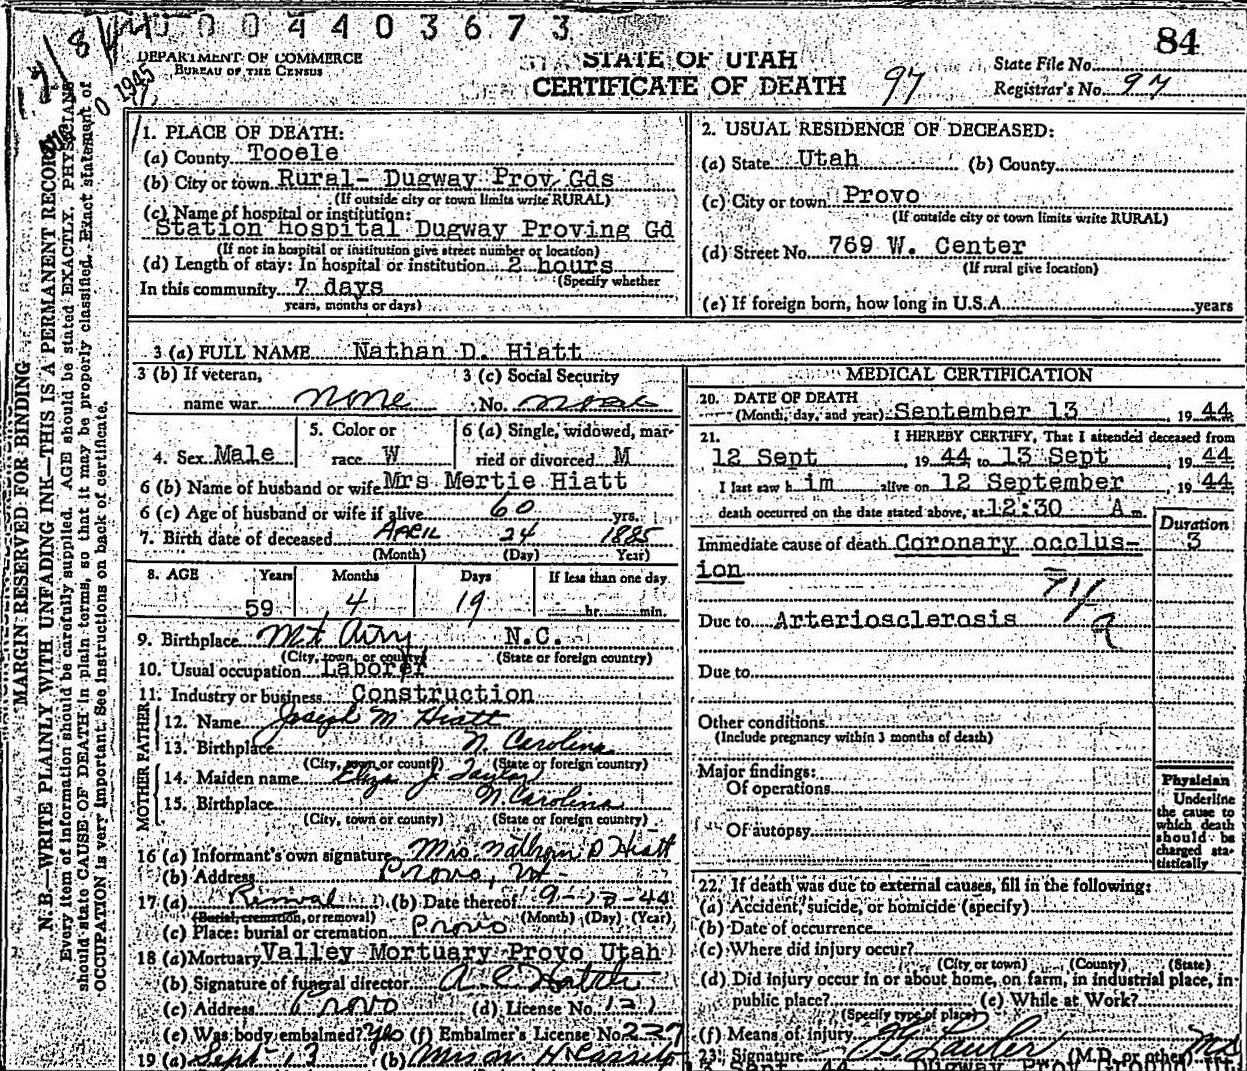 0 0 0 4 4 0 3 6 7 3
84
DEPARTMENT OF COMMERCE
BUREAU OF THE CENSUS
1945
STATE OF UTAH
CERTIFICATE OF DEATH
97
State File No.
Registrar's No. 97
MARGIN RESERVED FOR BINDING
N. B.—WRITE PLAINLY WITH UNFADING INK—THIS IS A PERMANENT RECORD
Every item of information should be carefully supplied. AGE should be stated EXACTLY. PHYSICIANS
should state CAUSE OF DEATH in plain terms, so that it may be properly classified. Exact statement of
OCCUPATION is very important. See instructions on back of certificate.
1. PLACE OF DEATH:
(a) County Tooele
(b) City or town Rural- Dugway Prov Gds
(If outside city or town limits write RURAL)
(c) Name of hospital or institution:
Station Hospital Dugway Proving Gd
(If not in hospital or institution give street number or location)
(d) Length of stay: In hospital or institution 2 hours
(Specify whether
In this community 7 days
years, months or days)
2. USUAL RESIDENCE OF DECEASED:
(a) State Utah (b) County
(c) City or town Provo
(If outside city or town limits write RURAL)
(d) Street No. 769 W. Center
(If rural give location)
(e) If foreign born, how long in U.S.A. years
3 (a) FULL NAME Nathan D. Hiatt
3 (b) If veteran, 3 (c) Social Security
name war none No. none
4. Sex Male 5. Color or race W 6 (a) Single, widowed, married or divorced M
6 (b) Name of husband or wife Mrs Mertie Hiatt
6 (c) Age of husband or wife if alive 60 yrs.
7. Birth date of deceased April 24 1885
(Month) (Day) Year)
8. AGE Years Months Days If less than one day
59 4 19 hr. min.
9. Birthplace Mt Airy N.C.
(City, town, or county) (State or foreign country)
10. Usual occupation Laborer
11. Industry or business Construction
FATHER
12. Name Joseph M Hiatt
13. Birthplace N. Carolina
(City, town or county) (State or foreign country)
MOTHER
14. Maiden name Eliza J. Taylor
15. Birthplace N. Carolina
(City, town or county) (State or foreign country)
16 (a) Informant's own signature Mrs. Nathan D Hiatt
(b) Address Provo, Ut-
17 (a) Removal (b) Date thereof 9-13-44
(Burial, cremation, or removal) (Month) (Day) (Year)
(c) Place: burial or cremation Provo
18 (a) Mortuary Valley Mortuary Provo Utah
(b) Signature of funeral director
(c) Address Provo (d) License No. 131
(e) Was body embalmed? Yes (f) Embalmer's License No. 237
19 (a) Sept 13 (b)
MEDICAL CERTIFICATION
20. DATE OF DEATH
(Month, day, and year) September 13, 1944
21. I HEREBY CERTIFY, That I attended deceased from
12 Sept, 1944 to 13 Sept, 1944
I last saw him alive on 12 September, 1944
death occurred on the date stated above, at 12:30 A m.
Duration
Immediate cause of death Coronary occlus- 3
ion
Due to Arteriosclerosis
Due to
Other conditions
(Include pregnancy within 3 months of death)
Major findings:
Of operations
Of autopsy
Physician
Underline
the cause to
which death
should be
charged sta-
tistically
22. If death was due to external causes, fill in the following:
(a) Accident, suicide, or homicide (specify)
(b) Date of occurrence
(c) Where did injury occur?
(City or town) (County) (State)
(d) Did injury occur in or about home, on farm, in industrial place, in
public place? (e) While at Work?
(Specify type of place)
(f) Means of injury
23. Signature (M.D. or other) MD
Sept 44 Dugway Prov Ground Ut.